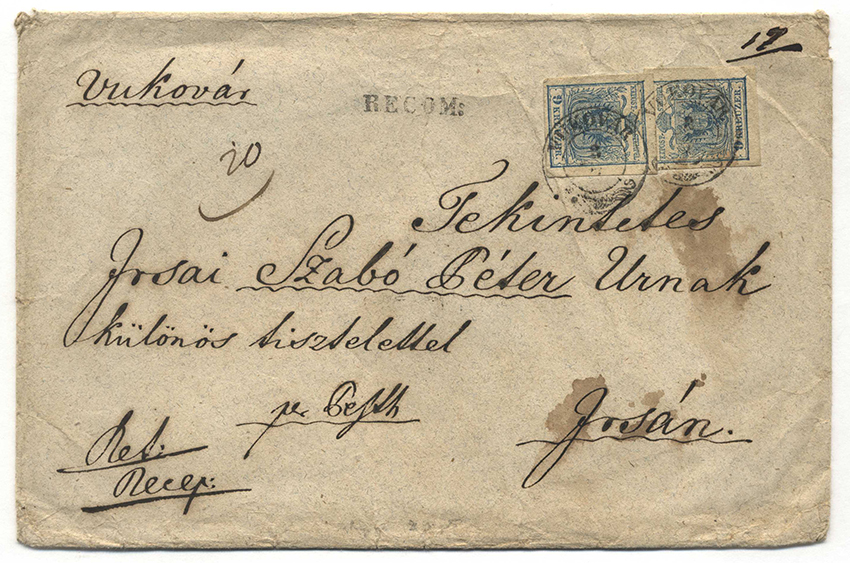 19
Vukovár
RECOM:
9 KREUZER.
VUKOVAR
VUKOVAR
20
Tekintetes
Irsai Szabó Péter Urnak
különös tisztelettel
pr. Pesth
Irsán.
Ret:
Recep: